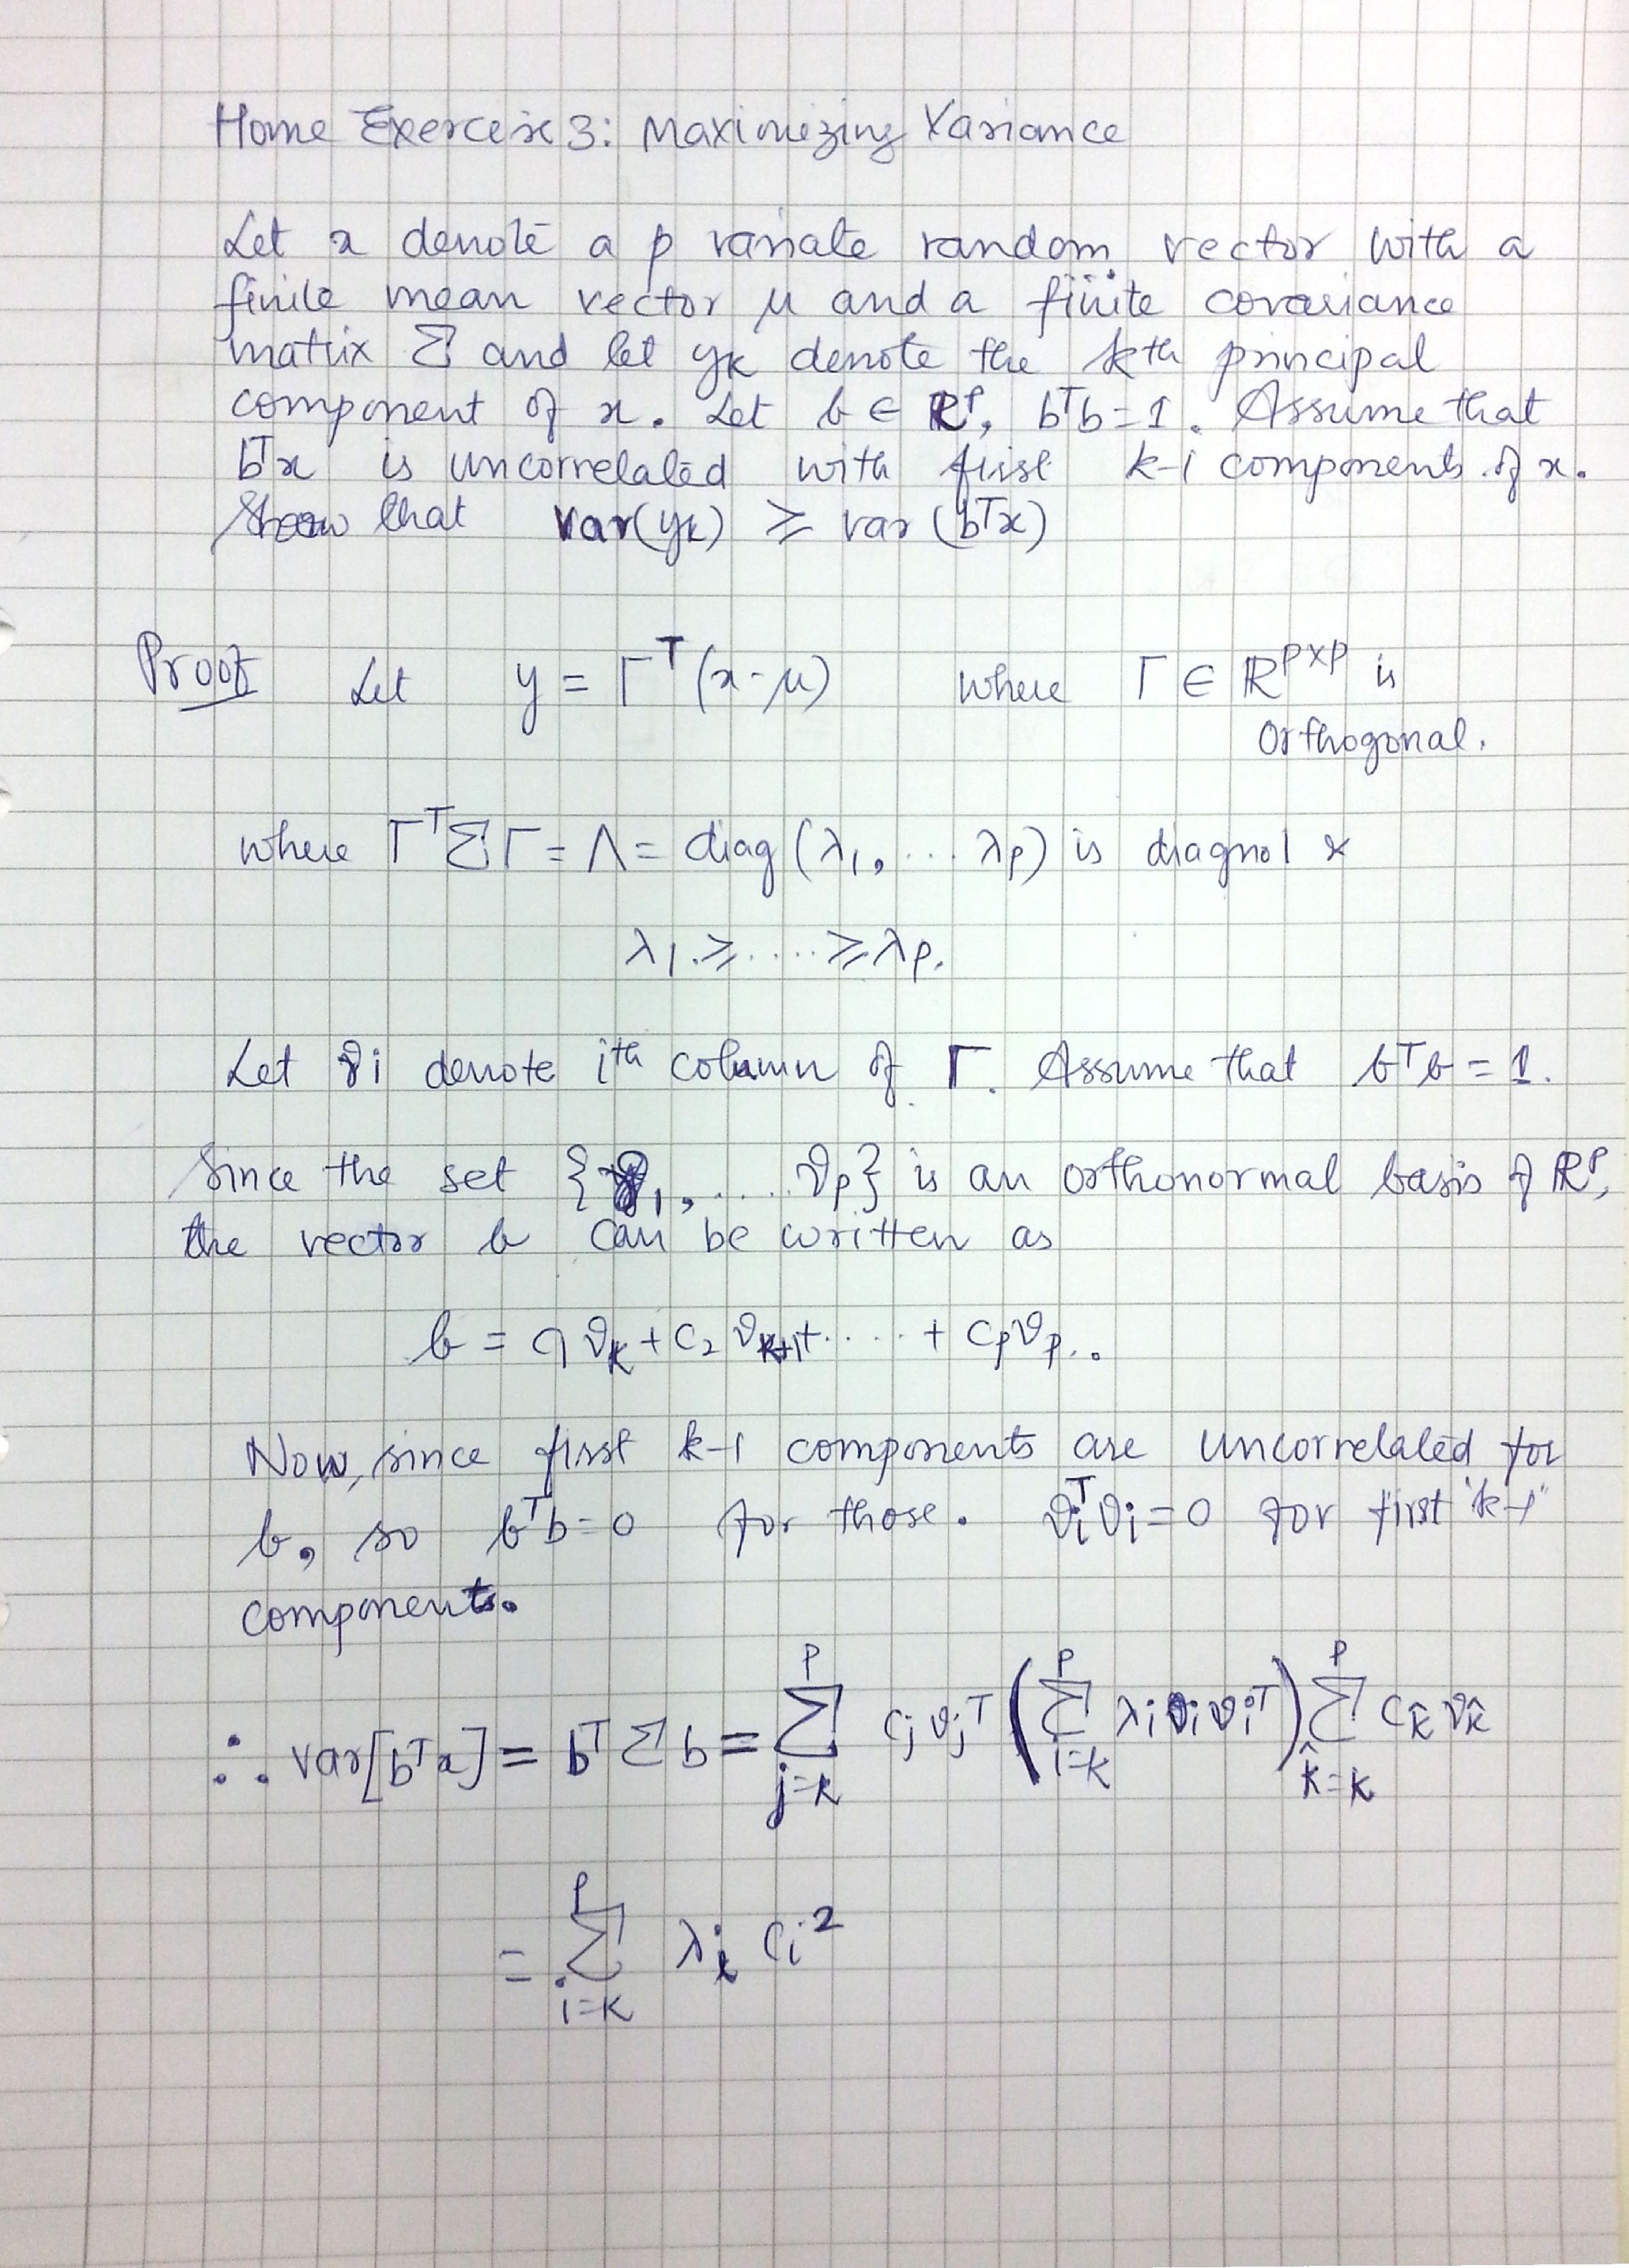 Home Exercise 3: Maximizing Variance
Let x denote a p variate random vector with a
finite mean vector μ and a finite covariance
matrix Σ and let yk denote the kth principal
component of x. Let b ∈ ℝᵖ, bᵀb = 1. Assume that
bᵀx is uncorrelated with first k-1 components of x.
Show that var(yk) ≥ var (bᵀx)
Proof Let y = Γᵀ(x-μ) where Γ ∈ ℝᵖˣᵖ is
Orthogonal.
where ΓᵀΣΓ = Λ = diag (λ1, ... λp) is diagnol &
λ1 ≥ ..... ≥ λp.
Let ϑi denote ith column of Γ. Assume that bᵀb = 1.
Since the set {ϑ1, ..... ϑp} is an orthonormal basis of ℝᵖ,
the vector b can be written as
b = c1 ϑk + c2 ϑk+1 + ..... + cp ϑp.
Now, since first k-1 components are uncorrelated for
b, so bᵀb = 0 for those. ϑiᵀϑi = 0 for first "k-1"
components.
∴ var[bᵀx] = bᵀΣb = Σ_{j=k}^{p} cj ϑjᵀ (Σ_{i=k}^{p} λi ϑi ϑiᵀ) Σ_{k̂=k}^{p} ck̂ ϑk̂
= Σ_{i=k}^{p} λi ci²